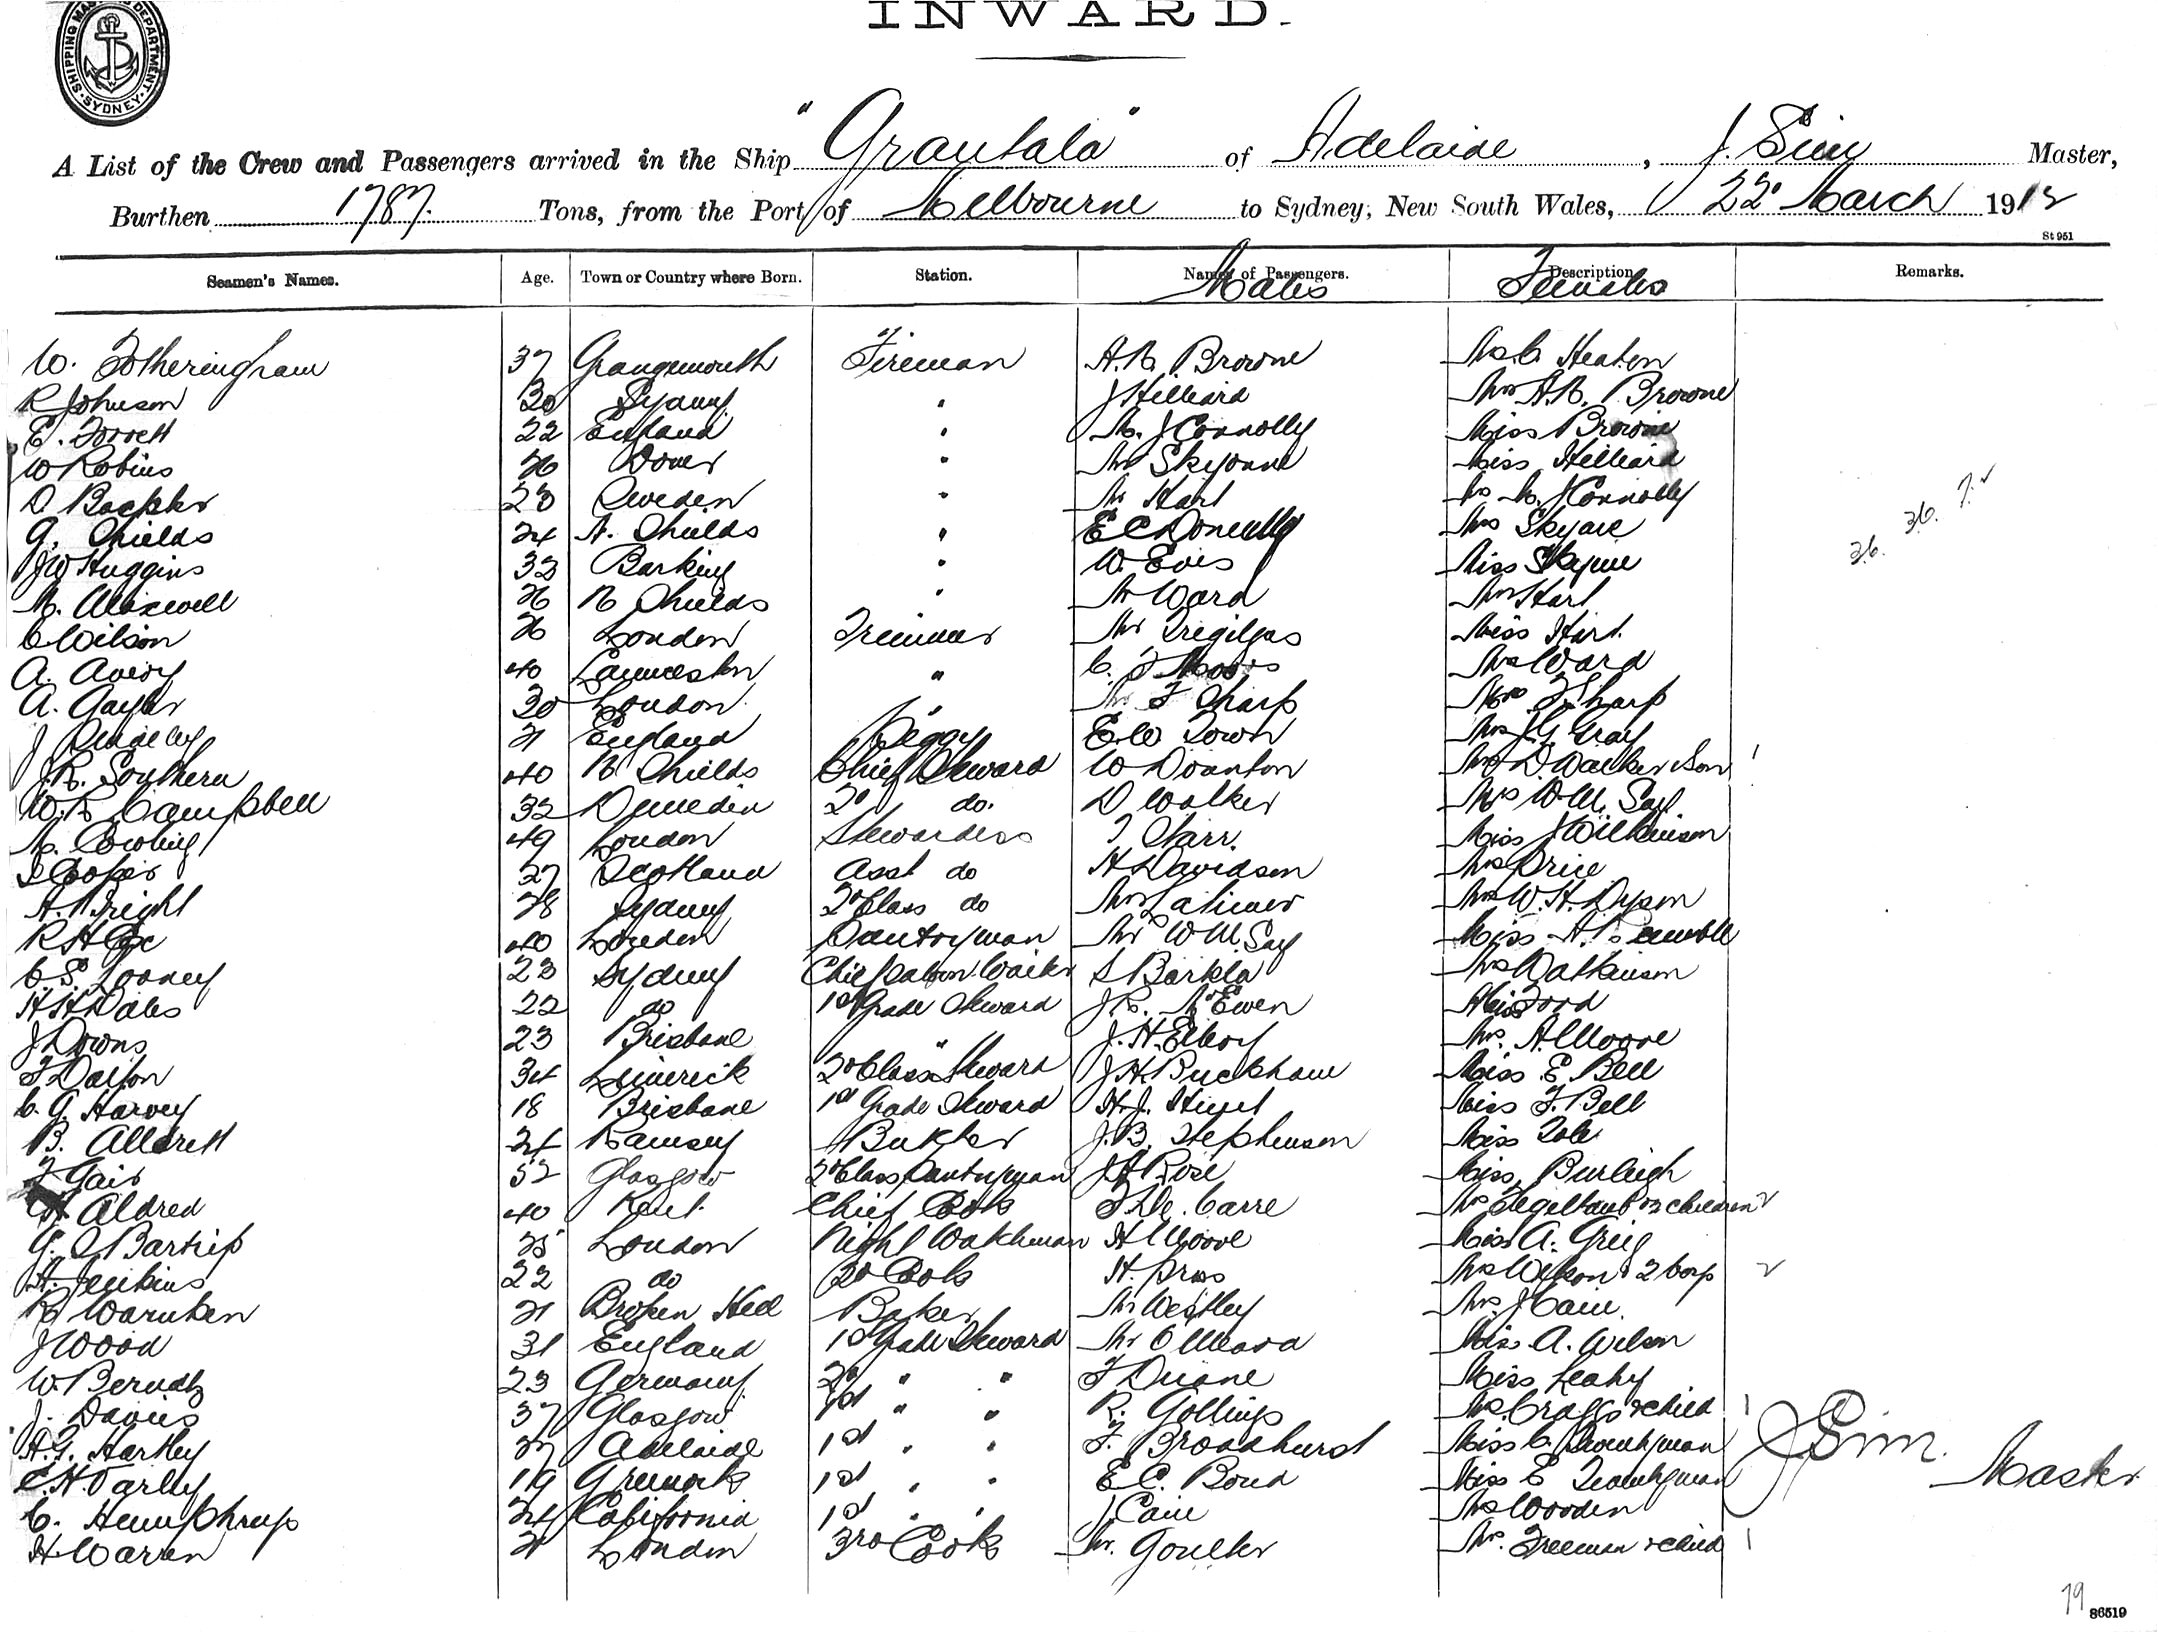 INWARD.
SHIPPING MASTER'S DEPARTMENT. SYDNEY.
A List of the Crew and Passengers arrived in the Ship "Grantala" of Adelaide, J. Sim Master,
Burthen 1787. Tons, from the Port of Melbourne to Sydney, New South Wales, 22d March 1912
St 951
Seamen's Names. Age. Town or Country where Born. Station. Names of Passengers. Description Remarks.
Males Females
W. Fotheringham 37 Grangemouth Fireman A.R. Browne Mrs C. Heaton
R Johnson 30 Sydney " J Hilliard Mrs A.R. Browne
E. Torrett 22 England " M. J Connolly Miss Browne
W Robins 26 Dover " Mr Skyonne Miss Hilliard
D Backter 23 Sweden " Mr Hart Mrs M. J Connolly
G. Shields 24 N. Shields " E C Donelly Mrs Skyare
J W Huggins 32 Barking " W. Evis Miss Skyrme
M. Maxwell 26 N Shields " Mr Ward Mrs Hart
C Wilson 26 London Trimmer Mr Tregilgas Miss Hart.
A. Avery 40 Launceston " C. J Moors Mrs Ward
A. Gayler 30 London " Mr F Sharp Mrs F Sharp
J 21 England Peggy E.W Town Mrs J.G. Gray
J.R. Southern 40 N Shields Chief Steward W Doanton Mrs D Walker & Son 1
W.R Campbell 32 Dunedin 2d do. D Walker Mrs W.M. Say
M. Cowling 49 London Stewardess T Starr. Miss J Wilkinson
I Cooper 27 Scotland Asst do H Davidson Mrs Price
A. Wright 28 Sydney 2d Class do Mr Latimer Mrs W.H. Dyson
R H Coe 40 London Pantryman Mr W M. Say Miss A. Pemble
C. S. Looney 23 Sydney Chief Saloon Waiter S Barkla Mrs Watkinson
H H Dales 22 do 1st Grade Steward J.R. McEwen Miss Ford
J Downs 23 Brisbane " J. H. Elboy Mrs. A. Moore
F Dalton 34 Limerick 2d Class Steward J H Buckham Miss E. Bell
C. G. Harvey 18 Brisbane 1st Grade Steward H. J. Hunt Miss F. Bell
B. Alldrett 24 Ramsey Butcher J. B. Stephenson Miss Tole
F Gair 52 Glasgow 2d Class Pantryman J H Rose Miss Burleigh
H Aldred 40 Kent. Chief Cook F De. Carre Mrs Tegeltaub & 2 children 2
G. S Bartrip 25 London Night Watchman H Moore Miss A. Greig
H. Jenkins 22 do 2d Cook H. Pross Mrs Wilson & 2 boys 2
R Warnken 21 Broken Hill Baker Mr Westley Mrs. J Cain.
J Wood 31 England 1st Grade Steward Mr O'Meara Miss A. Wilson
W. Berndtz 23 Germany 2d " " F Duane Miss Leahy
J. Davies 37 Glasgow 1st " " R. Gollings Mrs. Craggs & child 1
H. G. Hartley 27 Adelaide 1st " " F. Broadhurst Miss C. Twentyman
E. H. Darley 19 Greenock 1st " " E C. Bond Miss E Twentyman
C. Humphreys 24 California 1st " " J Cain Mrs Wooden
H. Warren 21 London 3rd Cook Mr. Goulter Mrs. Freeman & child 1
J Sim.
Master
79
86519